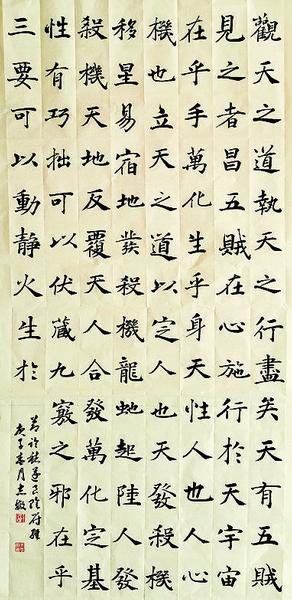 觀天之道執天之行盡矣天有五賊
見之者昌五賊在心施行於天宇宙
在乎手萬化生乎身天性人也人心
機也立天之道以定人也天發殺機
移星易宿地發殺機龍虵起陸人發
殺機天地反覆天人合發萬化定基
性有巧拙可以伏藏九竅之邪在乎
三要可以動靜火生於
遂良陰符經
庚子春月